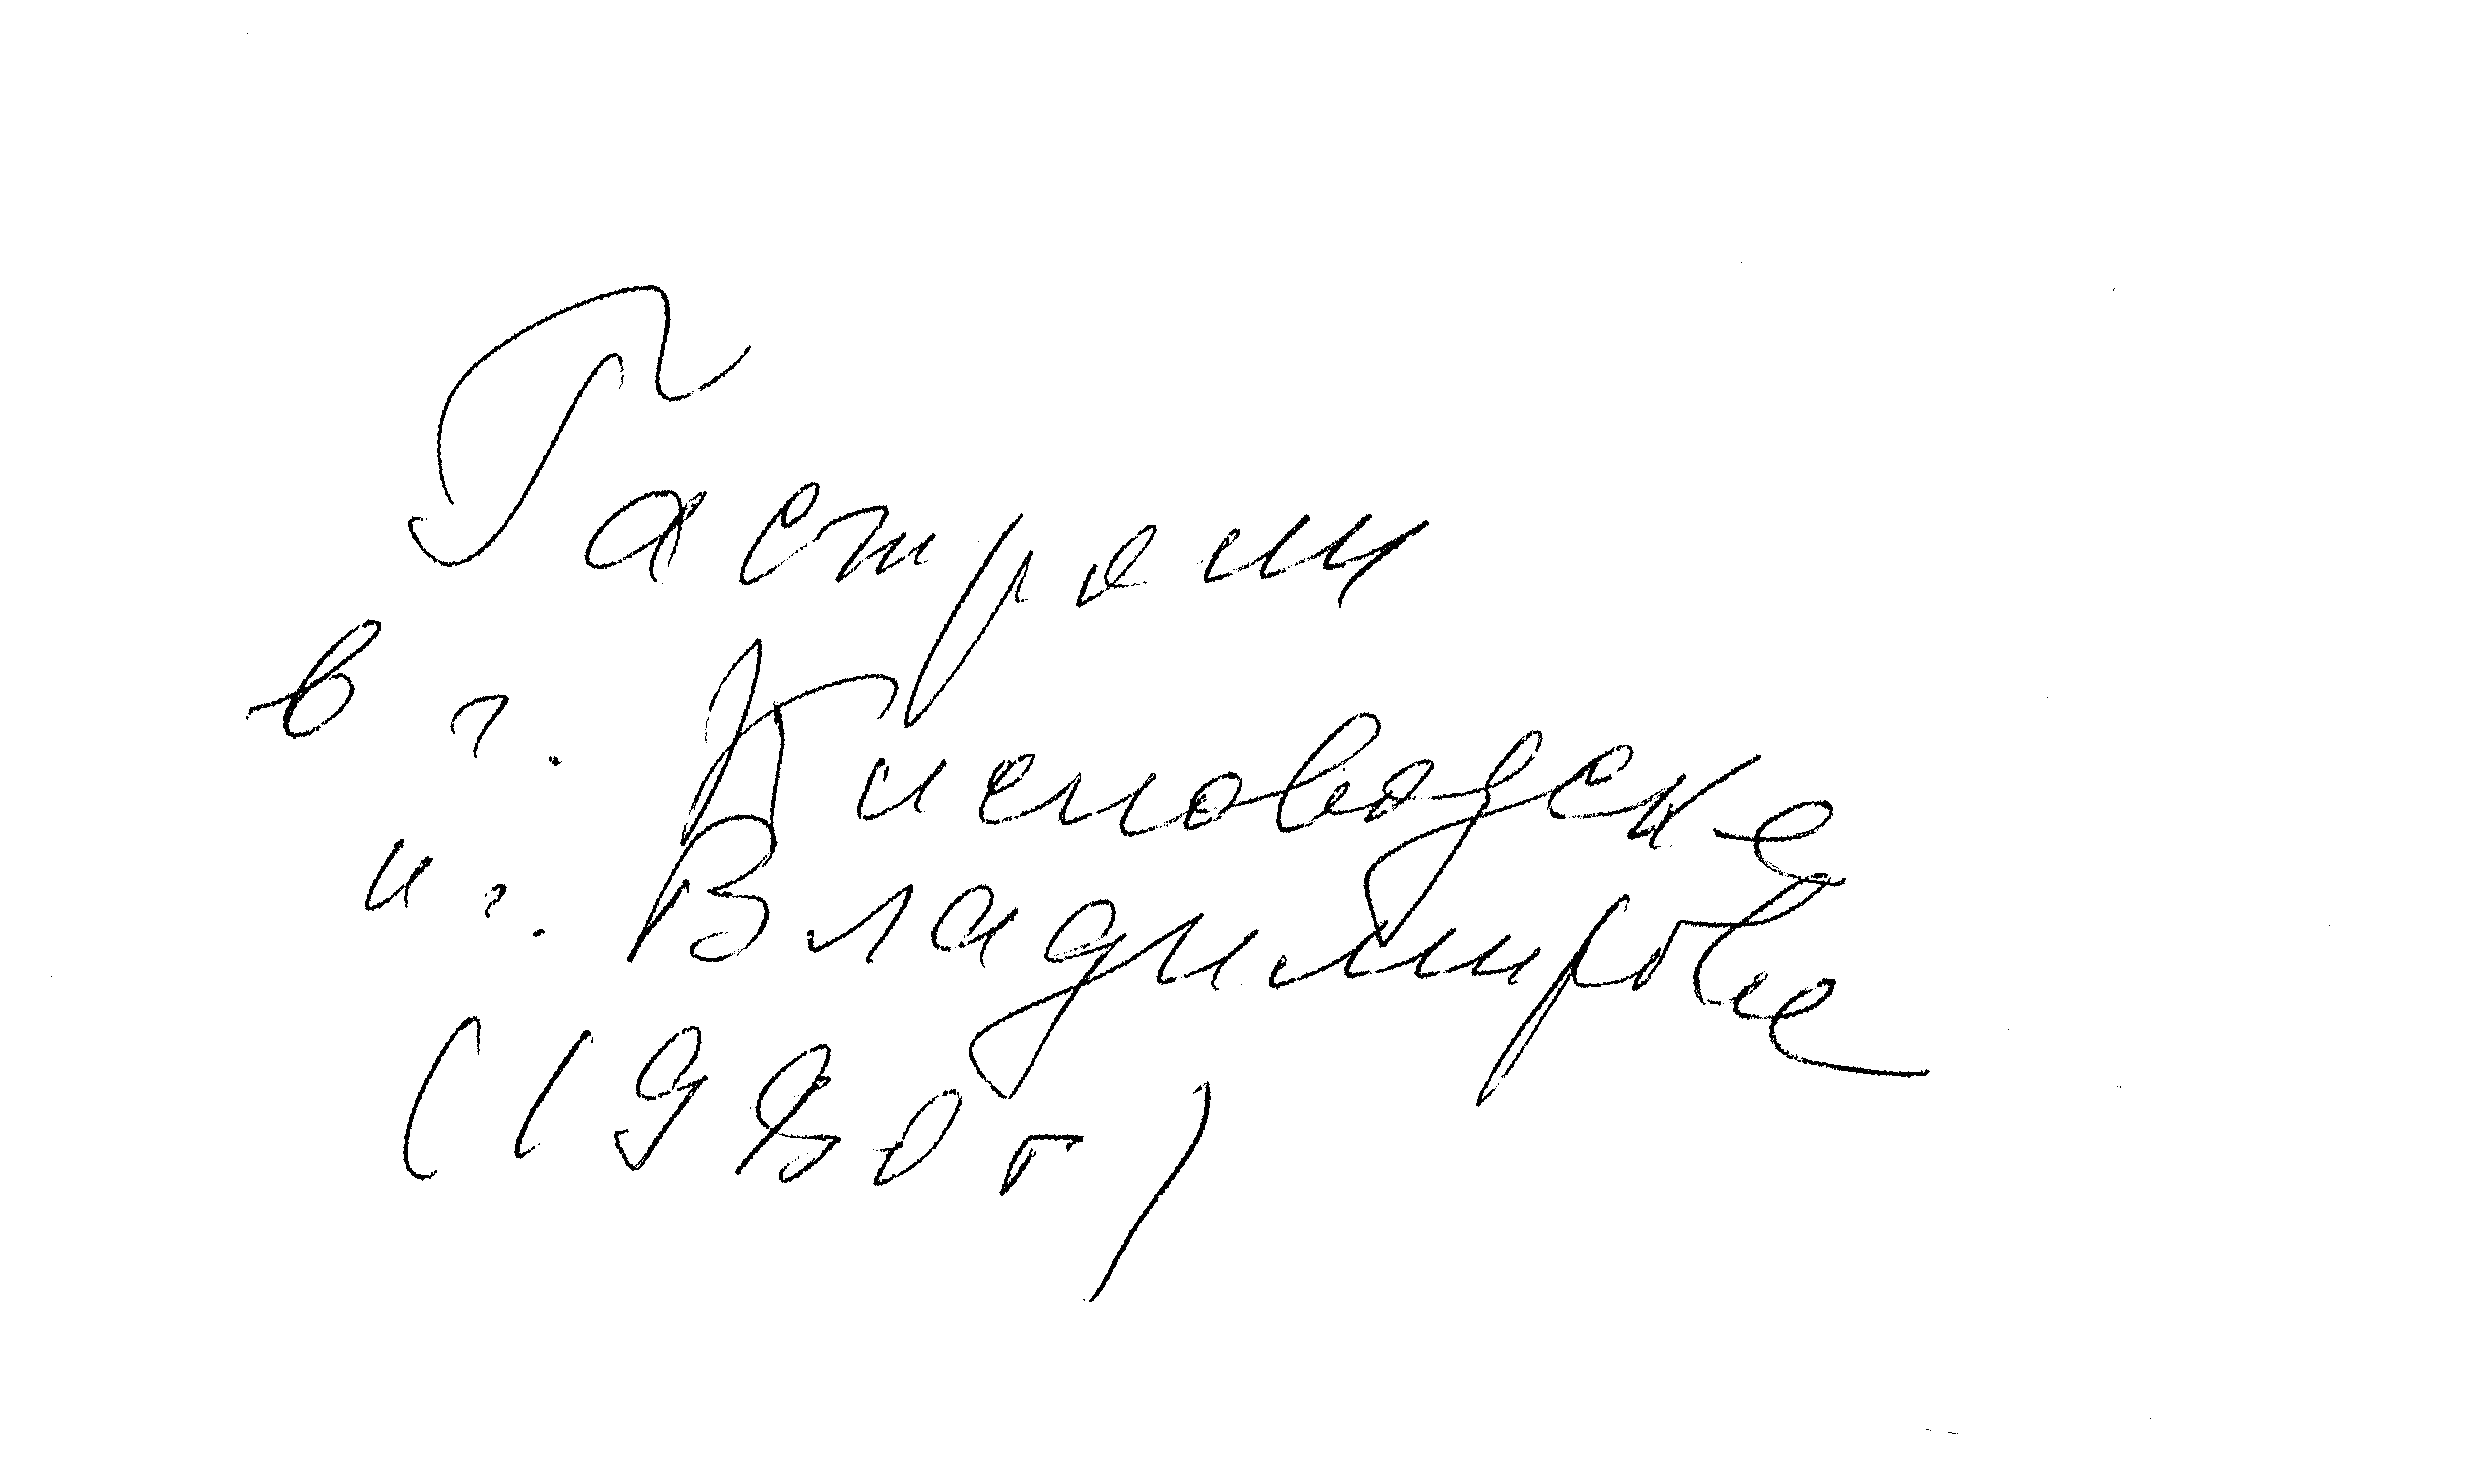 Гастроли
в г. Кисловодске
и г. Владимирове
(1980г)